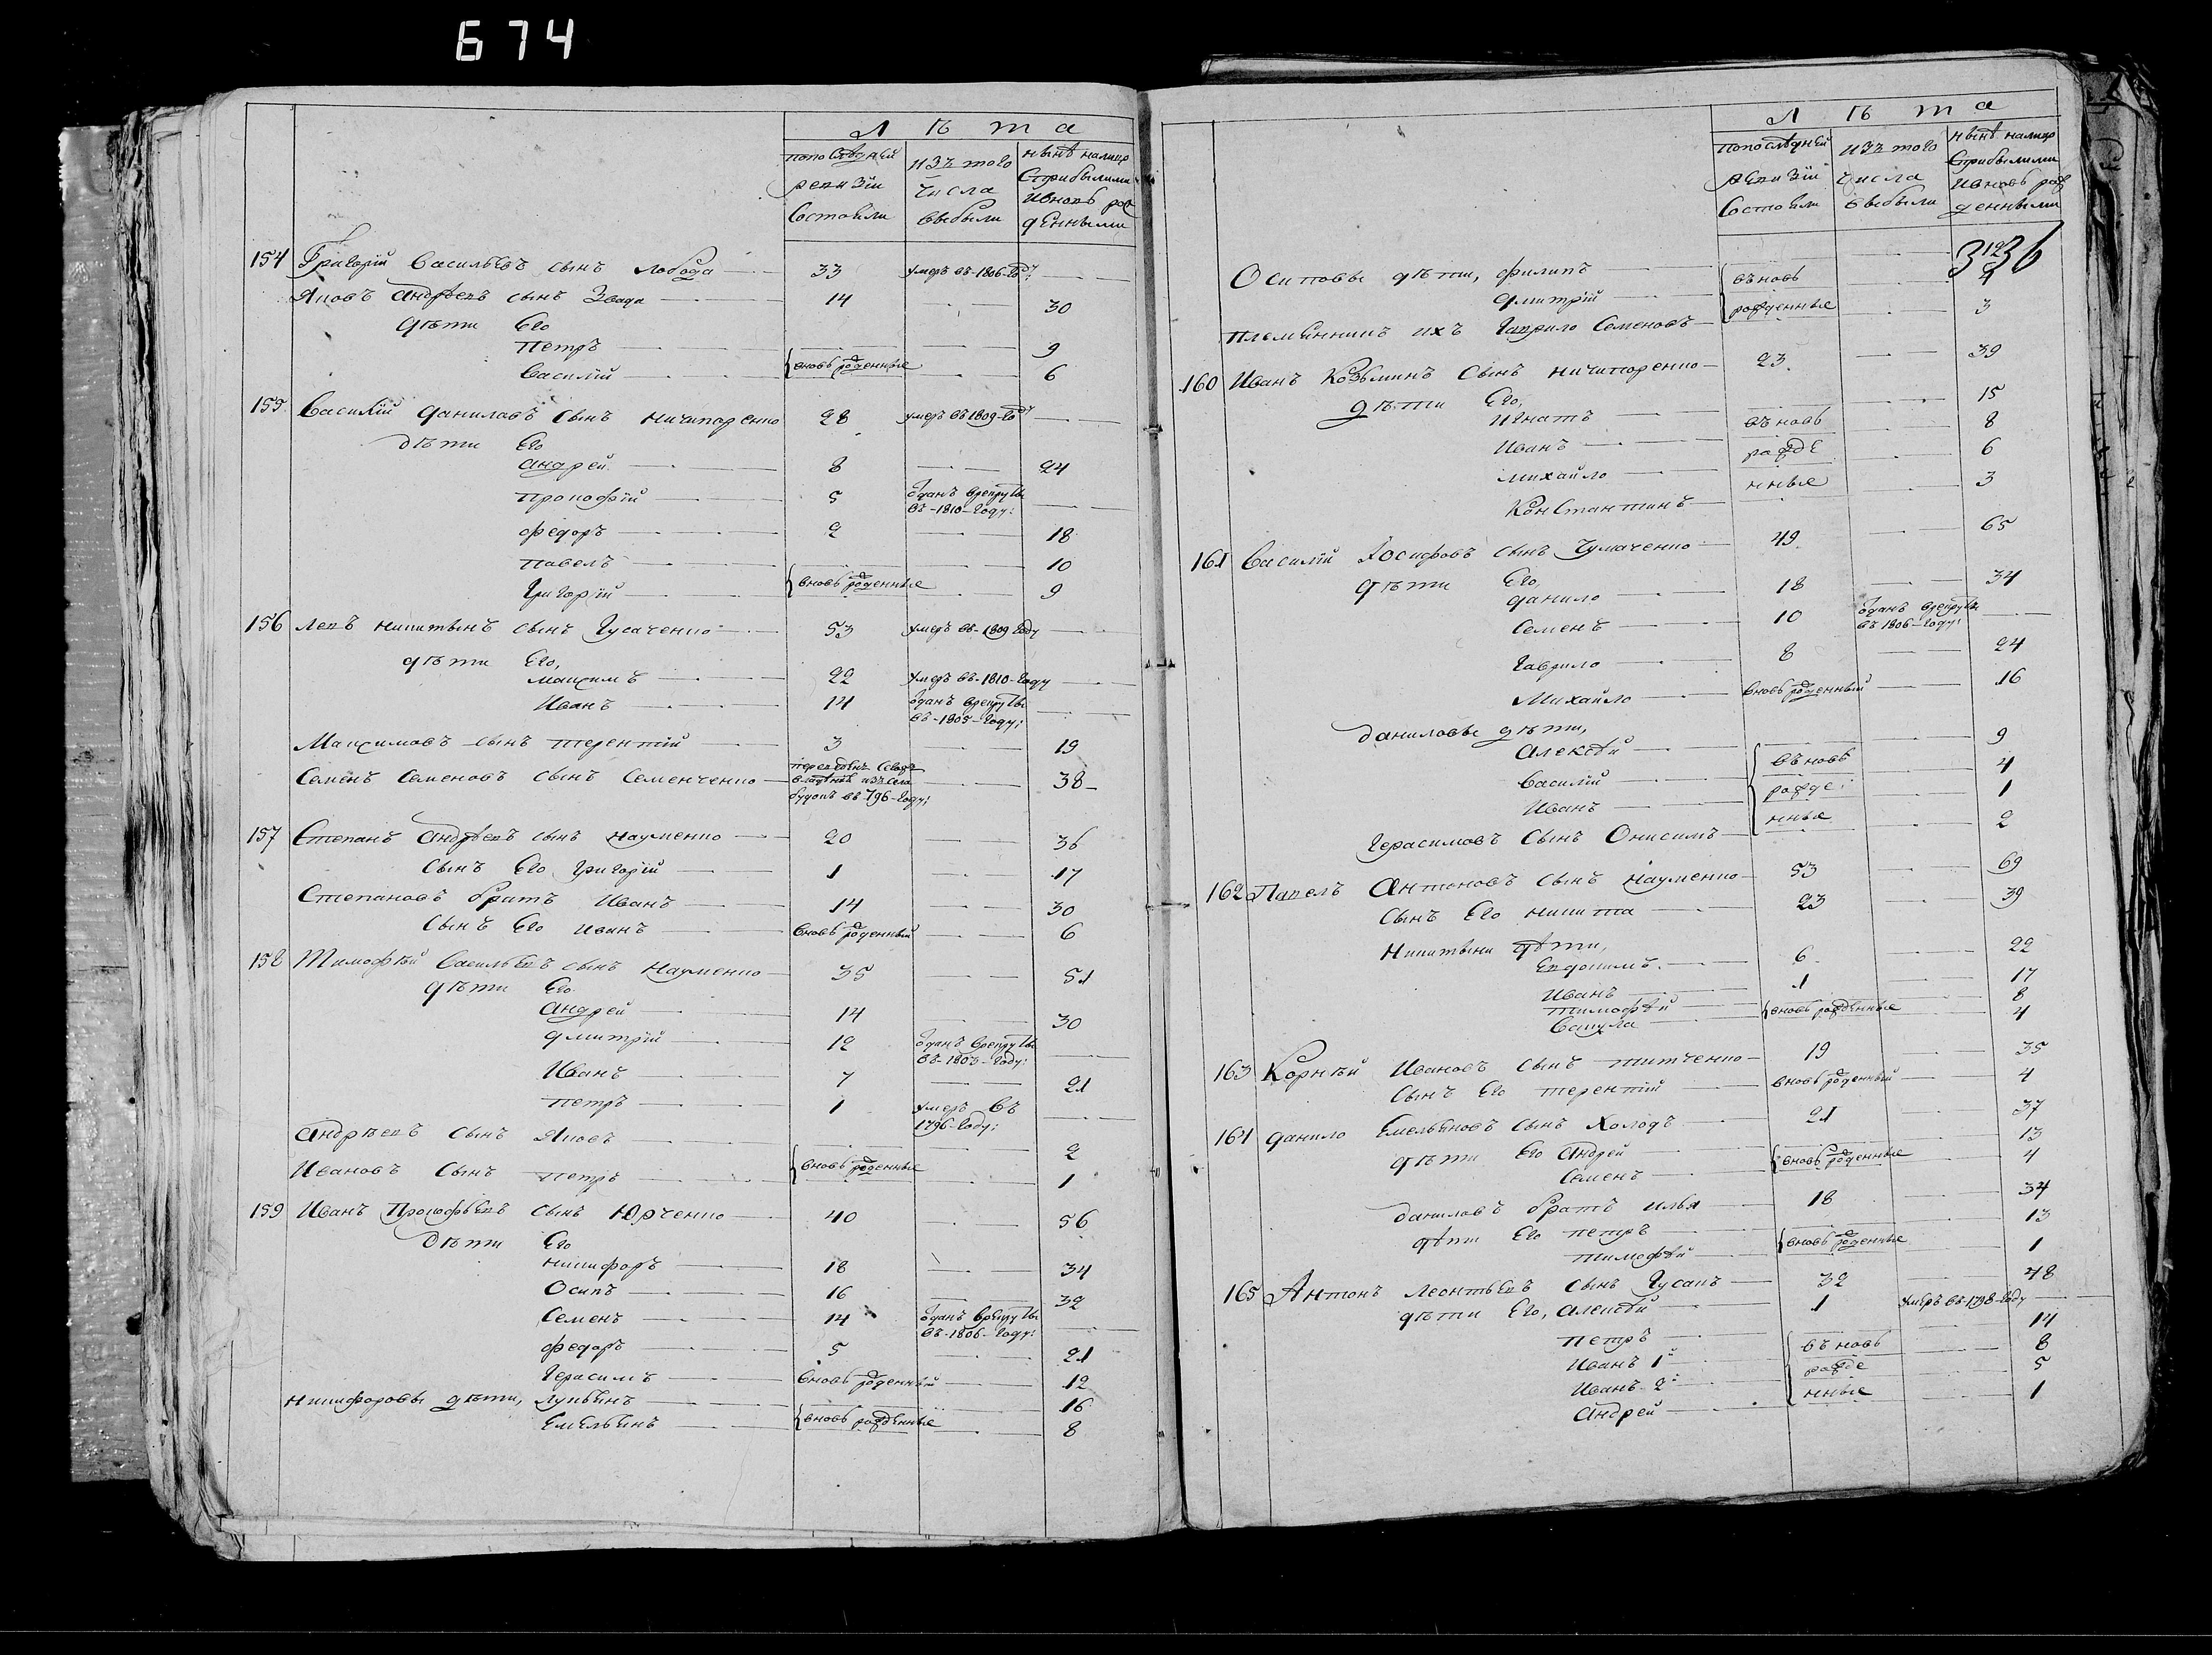 674
Л ѣ т а
попоследней | изъ того | нынѣ налицо
ревизіи | числа | Сприбылими
Состояли | выбыли | ивновь рож
денными
154 Григорій Васильевъ сынъ Лобода 33 умеръ въ-1806-году
Яковъ Андреевъ сынъ 14 30
дѣти Его
Петръ 9
Василій вновь рожденные 6
155 Василій Даниловъ Сынъ Ничипоренко 28 умеръ въ 1809-году
дѣти Его
Андрей 8 24
Прокофій 5 одан врекруты
въ-1810-году:
Федоръ 2 18
Павелъ 10
Григорій вновь рожденные 9
156 Левъ Никитинъ сынъ Гусаченко 53 умеръ въ-1809 году
дѣти Его,
Максимъ 22 умеръ въ-1810-году
Иванъ 14 оданъ врекруты
въ-1805-году;
Максимовъ сынъ Терентій 3 19
Семенъ Семеновъ сынъ Семенченко 38
въ 796-году;
157 Степанъ Андреевъ сынъ Науменко 20 36
Сынъ Его Григорій 1 17
Степановъ братъ Иванъ 14 30
Сынъ Его Иванъ вновь рожденный 6
158 Тимофѣй Васильевъ сынъ Науменко 35 51
дѣти Его
Андрей 14 30
Дмитрій 12 оданъ врекруты
въ-1803-году:
Иванъ 7 21
Петръ 1 умеръ въ
1796-году;
Андрѣевъ сынъ Яковъ 2
Ивановъ Сынъ Петръ вновь рожденные 1
159 Иванъ Прокофьевъ сынъ Юрченко 40 56
дѣти Его
Никифоръ 18 34
Осипъ 16 32
Семенъ 14 оданъ врекруты
въ-1806-году:
Федоръ 5 21
Герасимъ вновь рожденный 12
Никифоровы дѣти, Лукьянъ 16
Емельянъ вновь рожденные 8
Л ѣ т а
попослѣдней | изъ того | нынѣ налицо
ревизіи | числа | Сприбылими
Состояли | выбыли | ивновь рож
денными
336
Осиповы дѣти, Филипъ 12
Дмитрій въновь
Племянникъ ихъ Гаврило Семеновъ рожденные 3
160 Иванъ Козьминъ Сынъ Ничипоренко 23 39
дѣти Его,
Игнатъ 15
Иванъ въновь 8
Михайло рожде 6
Константинъ нные 3
161 Василій Іосифовъ сынъ Чумаченко 49 65
дѣти Его,
Данило 18 34
Семенъ 10 оданъ врекруты
въ 1806-году:
Гаврило 8 24
Михайло вновь рожденный 16
Даниловы дѣти,
Алексѣй 9
Василій въновь 4
Иванъ рожде: 1
Герасимовъ Сынъ Онисимъ нные 2
162 Павелъ Антоновъ сынъ Науменко 53 69
Сынъ Его Никита 23 39
Никитины дѣти,
Евдокимъ 6 22
Иванъ 1 17
Тимофѣй вновь рожденные 8
Вакула 4
163 Корнѣй Ивановъ сынъ Титченко 19 35
Сынъ Его Терентій вновь рожденный 4
164 Данило Емельяновъ сынъ Холодъ 21 37
дѣти Его Андрей 13
Семенъ вновь рожденные 4
Даниловъ братъ Илья 18 34
дѣти Его Петръ 13
Тимофѣй вновь рожденные 1
165 Антонъ Леонтьевъ сынъ Гусакъ 32 48
дѣти Его, Алексѣй 1 умеръ въ-1798-году
Петръ 14
Иванъ 1й въновь 8
Иванъ 2й рожде 5
Андрей нные 1